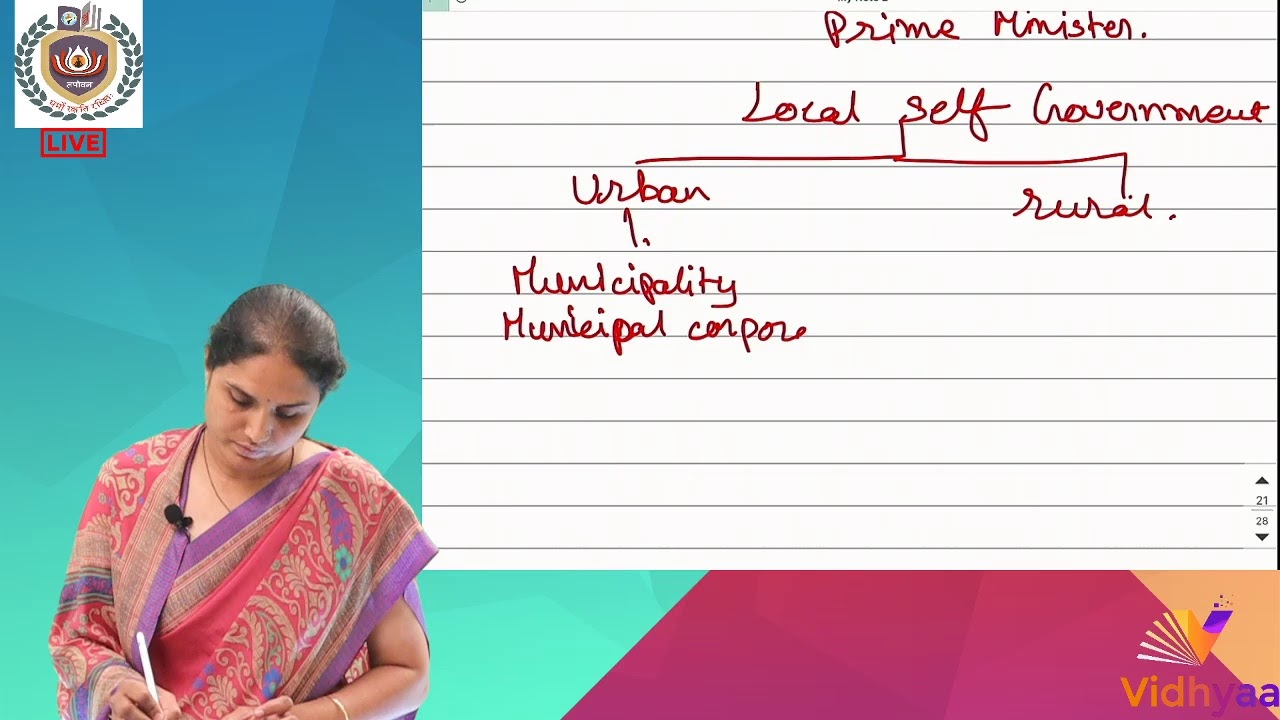 तपोवन
धर्मो रक्षति रक्षितः
LIVE
Prime Minister.
Local self Government
Urban
rural.
Municipality
Municipal corpora
21
28
Vidhyaa